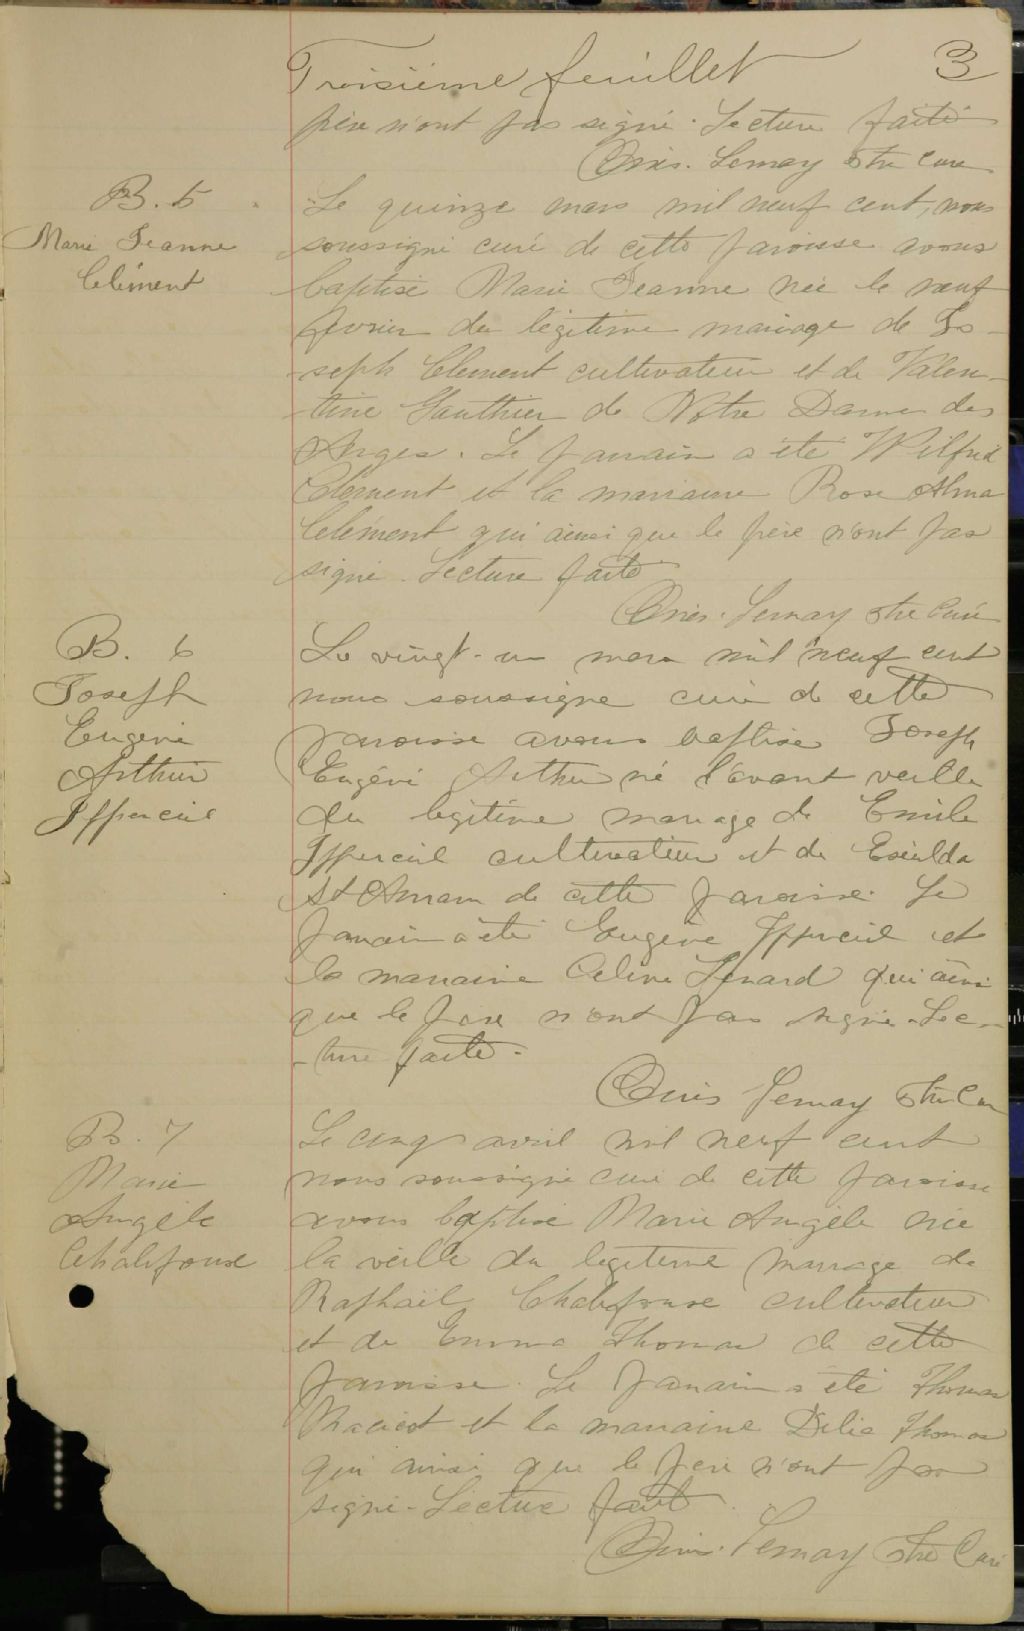 Troisième feuillet 3
père n'ont pas signé. Lecture faite
Lemay Ptre Curé
B. 5
Marie Jeanne
Clément
Le quinze mars mil neuf cent, nous
soussigné curé de cette paroisse avons
baptisé Marie Jeanne née le neuf
février du légitime mariage de Jo-
seph Clement cultivateur et de Valen-
-tine Gauthier de Notre Dame des
Anges. Le parrain a été Wilfrid
Clément et la marraine Rose Alma
Clément qui ainsi que le père n'ont pas
signé. Lecture faite
Lemay Ptre Curé
B. 6
Joseph
Eugène
Arthur
Le vingt-un mars mil neuf cent
nous soussigné curé de cette
paroisse avons baptisé Joseph
Eugène Arthur né l'avant veille
du légitime mariage de Emile
cultivateur et de
St Amam de cette paroisse. Le
parrain a été Eugène et
la marraine Celina qui ainsi
que le père n'ont pas signé. Lec-
-ture faite.
Lemay Ptre Cur
B. 7
Marie
Angèle
Chalifoux
Le cinq avril mil neuf cent
nous soussigné curé de cette paroisse
avons baptisé Marie Angèle née
la veille du légitime mariage de
Raphaël Chalifoux cultivateur
et de Emma Thomas de cette
paroisse. Le parrain a été Thomas
Racicot et la marraine Délia Thomas
qui ainsi que le père n'ont pas
signé. Lecture faite
Lemay Ptre Curé